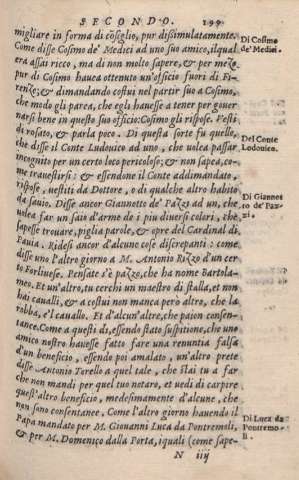 SECONDO. 199
migliare in forma di cõsiglio, pur dissimulatamente.
Come disse Cosimo de' Medici ad uno suo amico, ilqual
era assai ricco, ma di non molto sapere, & per mezo
pur di Cosimo hauea ottenuto un'officio fuori di Fi-
renze; & dimandando costui nel partir suo a Cosimo,
che modo gli parea, che egli hauesse a tener per gouer
narsi bene in questo suo officio: Cosimo gli rispose. Vesti
di rosato, & parla poco. Di questa sorte fu quello,
che disse il Conte Ludouico ad uno, che uolea passar
incognito per un certo loco pericoloso; & non sapea, co-
me trauestirsi: & essendone il Conte addimandato,
rispose, uestiti da Dottore, o di qualche altro habito
da sauio. Disse ancor Giannotto de' Pazzi ad un, che
uolea far un saio d'arme de i piu diuersi colori, che
sapesse trouare, piglia parole, & opre del Cardinal di
Pauia. Ridesi ancor d'alcune cose discrepanti: come
disse uno l'altro giorno a M. Antonio Rizzo d'un cer
to Forliuese. Pensate s'è pazzo, che ha nome Bartola-
meo. Et un'altro, tu cerchi un maestro di stalla, et non
hai caualli, & a costui non manca però altro, che la
robba, e'l cauallo. Et d'alcun'altre, che paion consen-
tanee. Come a questi dì, essendo stato suspitione, che uno
amico nostro hauesse fatto fare una renuntia falsa
d'un beneficio, essendo poi amalato, un'altro prete
disse Antonio Torello a quel tale, che stai tu a far
che non mandi per quel tuo notaro, et uedi di carpire
quest'altro beneficio, medesimamente d'alcune, che
non sono consentanee. Come l'altro giorno hauendo il
Papa mandato per M. Giouanni Luca da Pontremoli,
& per M. Domenico dalla Porta, iquali (come sape-
N iiij
Di Cosimo
de' Medici.
Del Conte
Lodouico.
Di Giannot
to de' Paz-
zi.
Di Luca da
Pontremo
li.